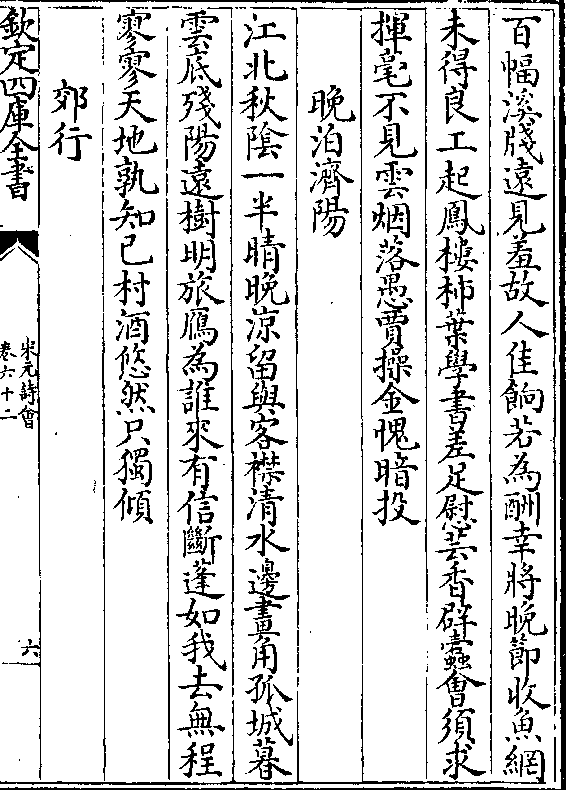 百幅溪牋遠見羞故人佳餉若為酬幸將晚節收魚網
未得良工起鳳樓柿葉學書差足慰芸香辟蠹會須求
揮毫不見雲烟落愚賈操金愧暗投
晚泊濟陽
江北秋陰一半晴晚涼留與客襟清水邊畫角孤城暮
雲底殘陽遠樹明旅鴈為誰來有信斷蓬如我去無程
寥寥天地孰知已村酒悠然只獨傾
郊行
欽定四庫全書
宋元詩會
卷六十二
六